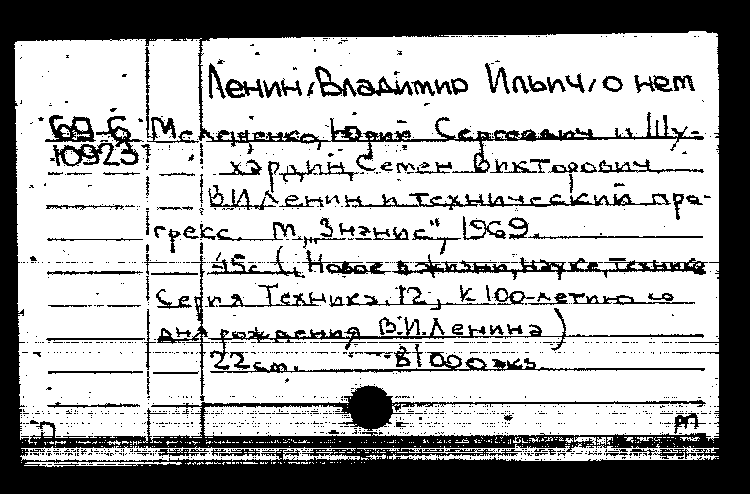 Ленин, Владимир Ильич, о нем
69-6 Мелещенко, Юрий Сергеевич и Шу-
10923 хардин, Семен Викторович
В.И.Ленин и технический про-
гресс. М., "Знание", 1969.
45с. (,,Новое в жизни, науке, технике
Серия Техника. 12; К 100-летию со
дня рождения В.И.Ленина)
22см. 81000 экз.
П